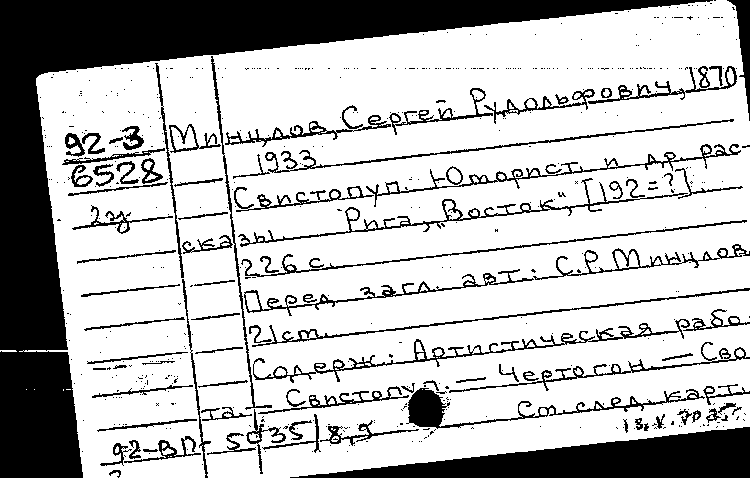 92-3
6528
2э
Минцлов, Сергей Рудольфович, 1870-
1933
Свистопуп. Юморист. и др. рас-
сказы. Рига, „Восток“, [192=?].
226 с.
Перед загл. авт.: С.Р. Минцлов
21 см.
Содерж.: Артистическая рабо-
та. — Свистопуп. — Чертогон. — Сво
См. след. карт.
92-ВП- 5035/8,9